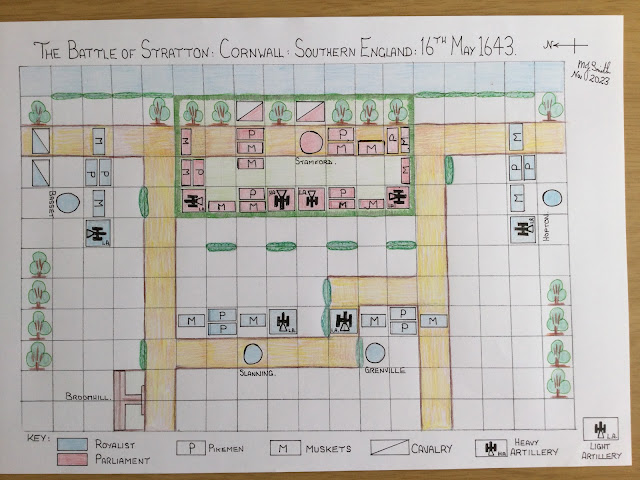 THE BATTLE OF STRATTON: CORNWALL: SOUTHERN ENGLAND: 16TH MAY 1643.
N
Nov 2023
P P P
M M M M M M
M
STAMFORD.
M M
P P P P P P
M
BASSET
HOPTON
M M P M M P M M
LA
M P M P M
P P
LA LA
SLANNING
GRENVILLE
BROOMHILL.
KEY:
ROYALIST
PARLIAMENT
P PIKEMEN
M MUSKETS
CAVALRY
HA HEAVY ARTILLERY
LA LIGHT ARTILLERY